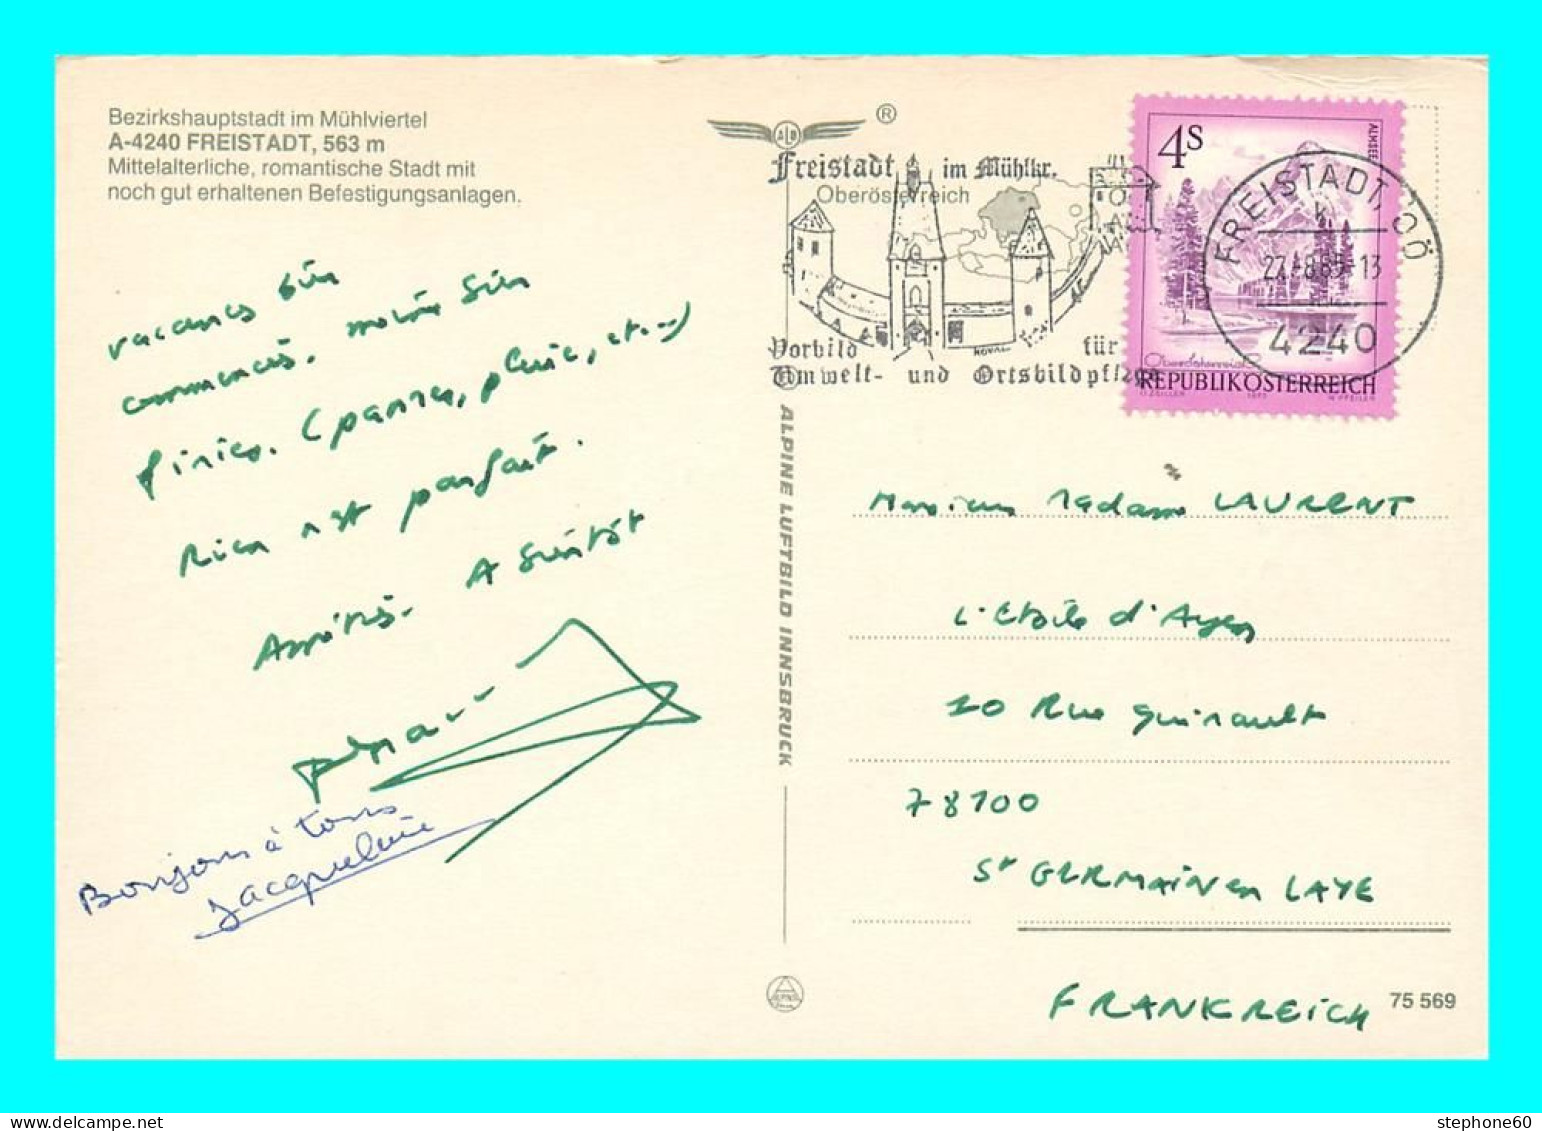 Bezirkshauptstadt im Mühlviertel
A-4240 FREISTADT, 563 m
Mittelalterliche, romantische Stadt mit
noch gut erhaltenen Befestigungsanlagen.
vacances bien
commencés. moins bien
finies. (pannes, pluie, etc...)
Rien n'est parfait.
Amitiés. A bientôt
Bonjour à tous
Jacqueline
ALD
®
Freistadt im Mühlkr.
Oberösterreich
Vorbild für
Umwelt- und Ortsbildpflege
4S
ALMSEE
Oberösterreich
REPUBLIK ÖSTERREICH
FREISTADT, OÖ
4240
ALPINE LUFTBILD INNSBRUCK
Monsieur Madame LAURENT
L'Etoile d'Ayen
10 Rue Quinault
78100
St GERMAIN en LAYE
FRANKREICH
75 569
stephone60